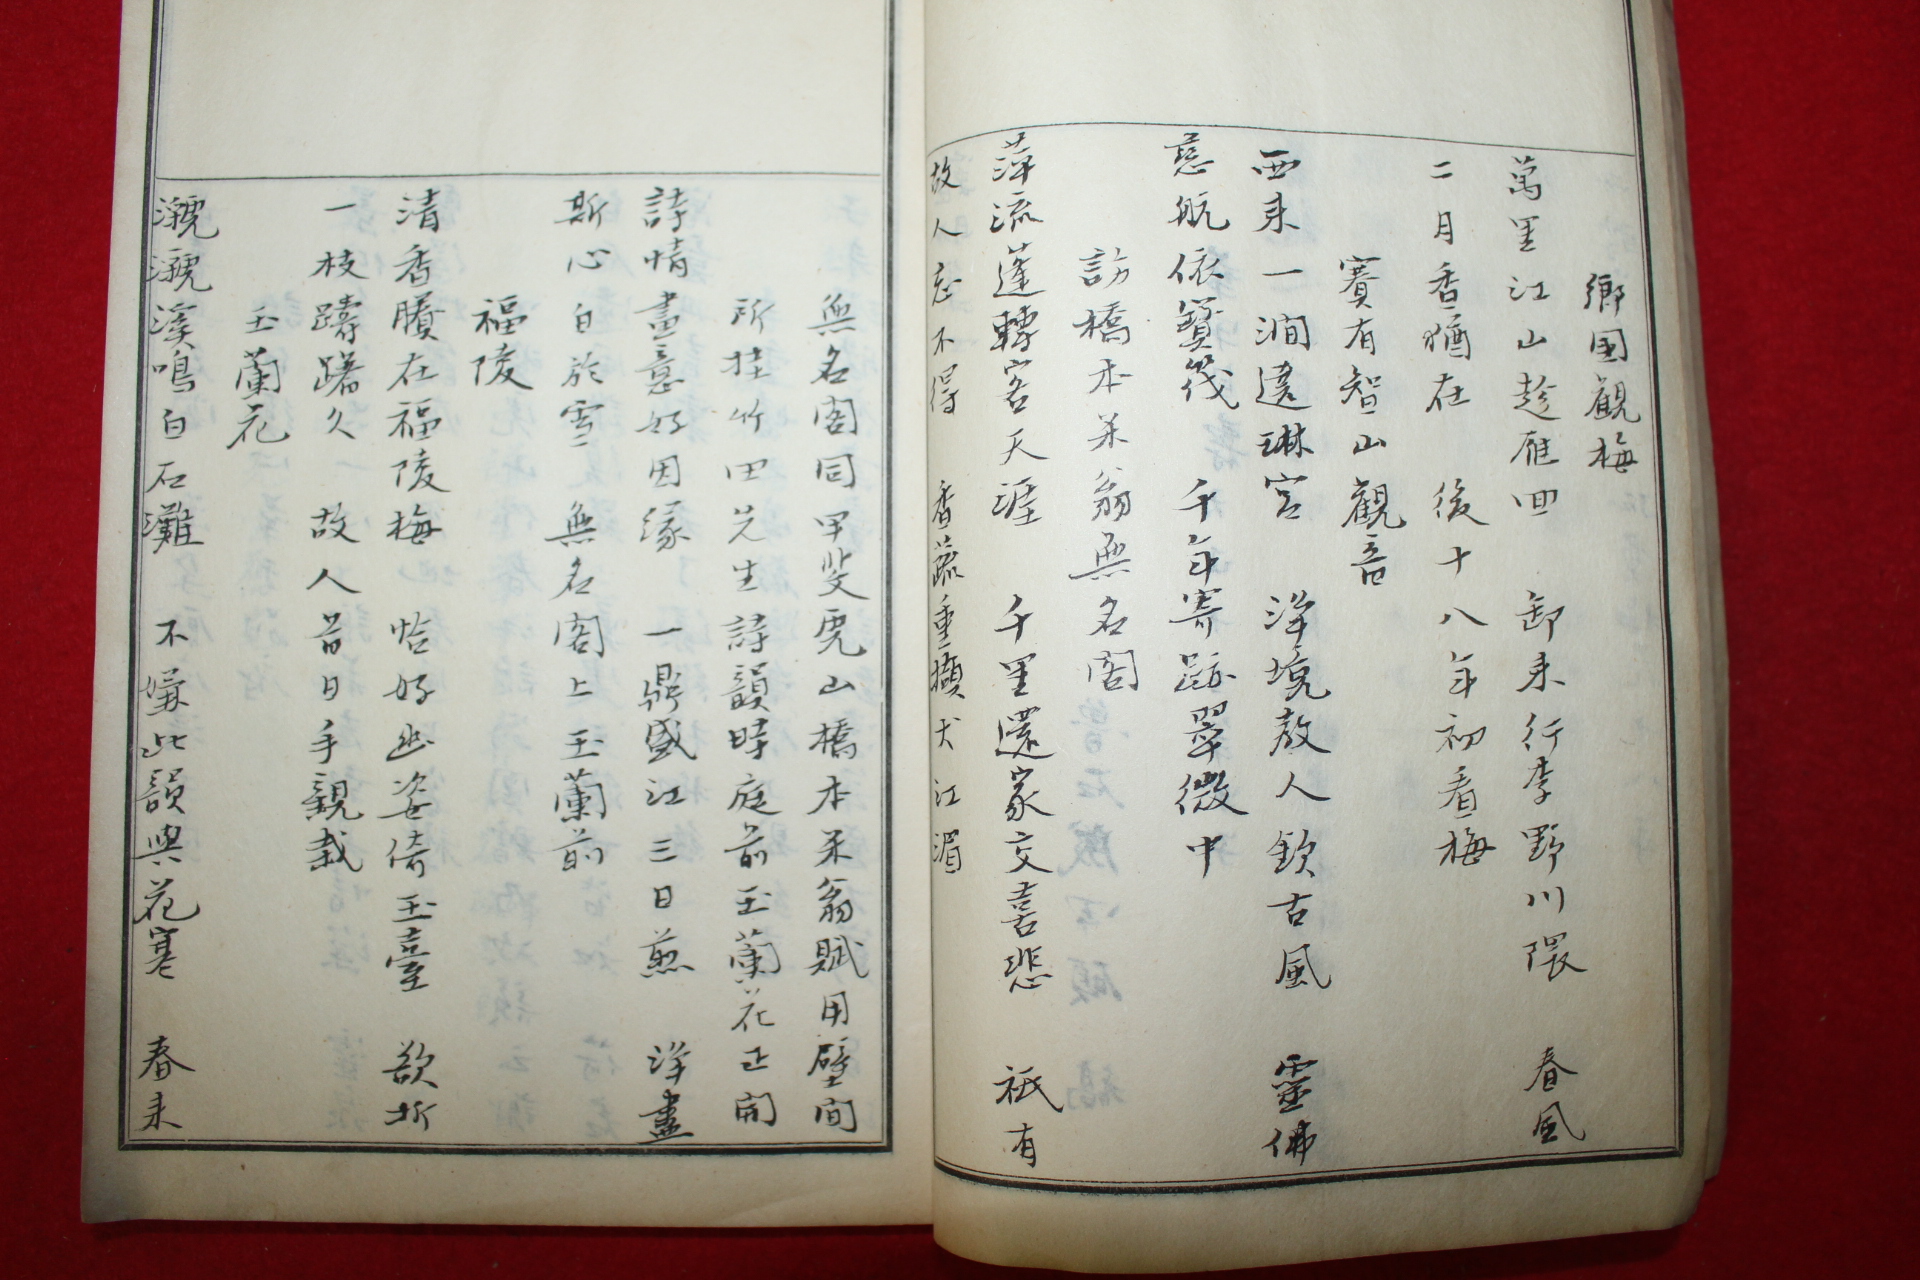 鄉園觀梅
萬里江山趁雁回 卸来行李野川隈 春風
二月香猶在 後十八年初看梅
賽有智山觀音
西来一澗遶琳宮 浄境教人欽古風 靈佛
慈航依寶筏 千年寄跡翠微中
訪橋本采翁無名閣
萍流蓬轉客天涯 千里還家交喜悲 祇有
故人忘不得 香蔬重擷犬江湄
無名閣同甲斐虎山橋本采翁賦用壁間
所挂竹田先生詩韻時庭前玉蘭花正開
詩情畫意好因緣 一鼎盛江三日煎 浄盡
斯心白於雪 無名閣上玉蘭前
福陵
清香賸在福陵梅 恰好幽姿倚玉臺 欲折
一枝躊躇久 故人昔日手親栽
玉蘭花
瀧瀧溪鳴白石灘 不嫌此韻與花寒 春来